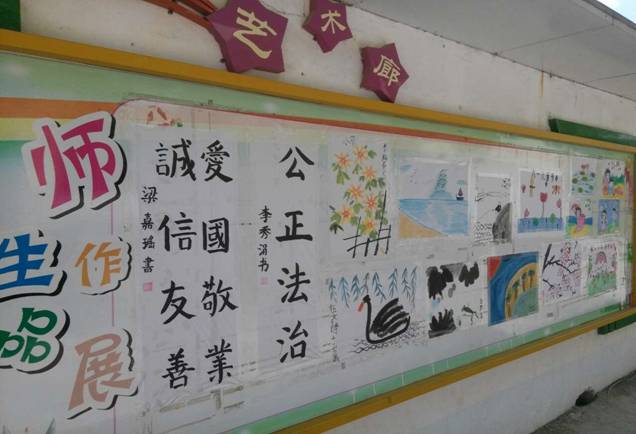 艺术廊
师生作品展
愛國敬業
誠信友善
梁嘉瑶書
公正法治
李秀涓书